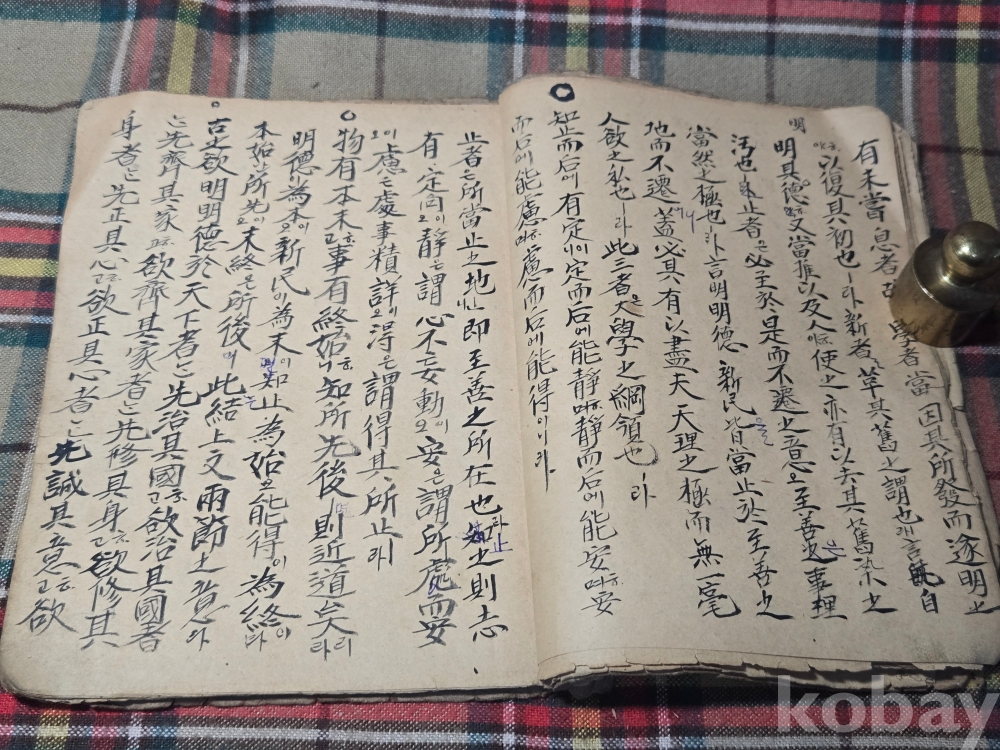 有未嘗息者故學者當因其所發而遂明之
以復其初也ㅣ라新者革其舊之謂也ㅣ니言旣自
明其德又當推以及人使之亦有以去其舊染之
汚也ㅣ라止者必至於是而不遷之意오至善은事理
當然之極也ㅣ라言明明德新民皆當止於至善之
地而不遷蓋必其有以盡夫天理之極而無一毫
人欲之私也ㅣ라此三者大學之綱領也ㅣ라
知止而后에有定이니定而后에能靜靜而后에能安安
而后에能慮慮而后에能得이니라
止者는所當止之地니卽至善之所在也ㅣ라知之則志
有定向이오靜은謂心不妄動이오安은謂所處而安
이오慮는處事精詳이오得은謂得其所止라
物有本末고事有終始니知所先後則近道矣리라
明德為本이오新民이為末이오知止為始오能得이為終이
本始所先이오末終은所後ㅣ며此結上文兩節之意라
古之欲明明德於天下者는先治其國고欲治其國者
는先齊其家고欲齊其家者는先修其身고欲修其
身者는先正其心고欲正其心者는先誠其意고欲
明
kobay